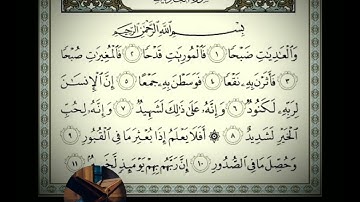 بِسْمِ ٱللَّهِ ٱلرَّحْمَٰنِ ٱلرَّحِيمِ
وَٱلْعَٰدِيَٰتِ ضَبْحًا ١ فَٱلْمُورِيَٰتِ قَدْحًا ٢ فَٱلْمُغِيرَٰتِ صُبْحًا
٣ فَأَثَرْنَ بِهِۦ نَقْعًا ٤ فَوَسَطْنَ بِهِۦ جَمْعًا ٥ إِنَّ ٱلْإِنسَٰنَ
لِرَبِّهِۦ لَكَنُودٌ ٦ وَإِنَّهُۥ عَلَىٰ ذَٰلِكَ لَشَهِيدٌ ٧ وَإِنَّهُۥ لِحُبِّ
ٱلْخَيْرِ لَشَدِيدٌ ٨ أَفَلَا يَعْلَمُ إِذَا بُعْثِرَ مَا فِى ٱلْقُبُورِ ٩
وَحُصِّلَ مَا فِى ٱلصُّدُورِ ١٠ إِنَّ رَبَّهُم بِهِمْ يَوْمَئِذٍ لَّخَبِيرٌۢ ١١